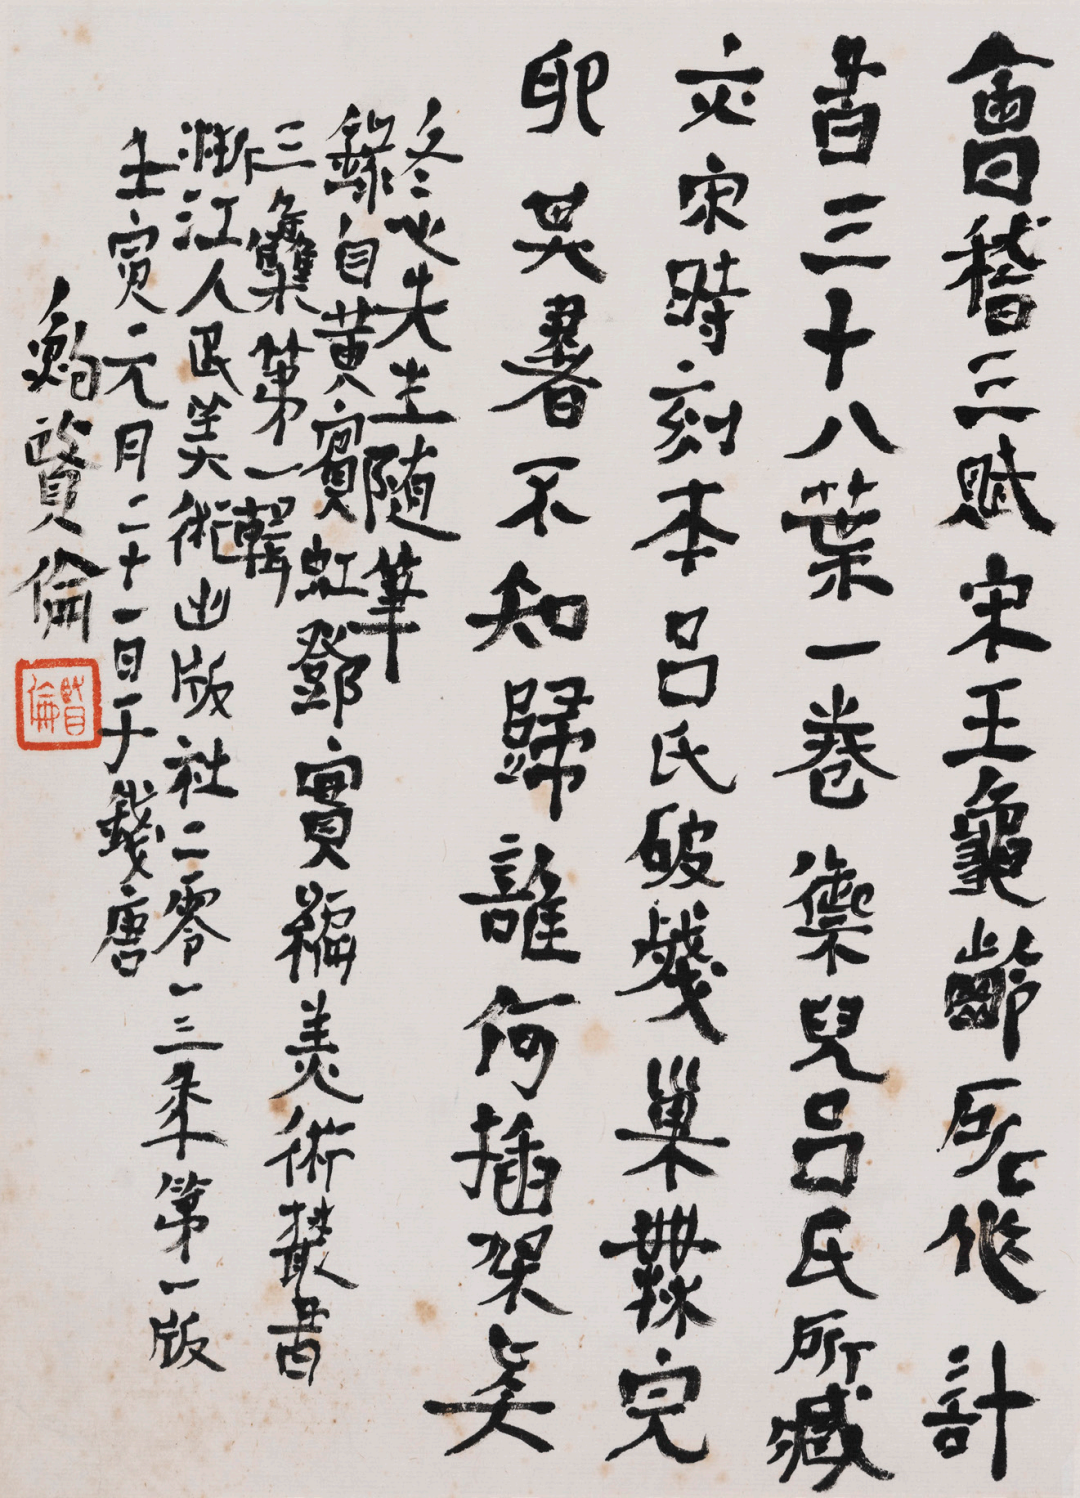 會稽三賦宋王龜齡所作計
書三十八葉一卷禦兒呂氏所藏
亦宋時刻本呂氏破殘巢無完
卵其書不知歸誰何插架矣
冬心先生隨筆
錄自黃賓虹鄧實編美術叢書
三集第一輯
浙江人民美術出版社二零一三年第一版
壬寅元月二十一日于錢唐
鮑賢倫
賢倫